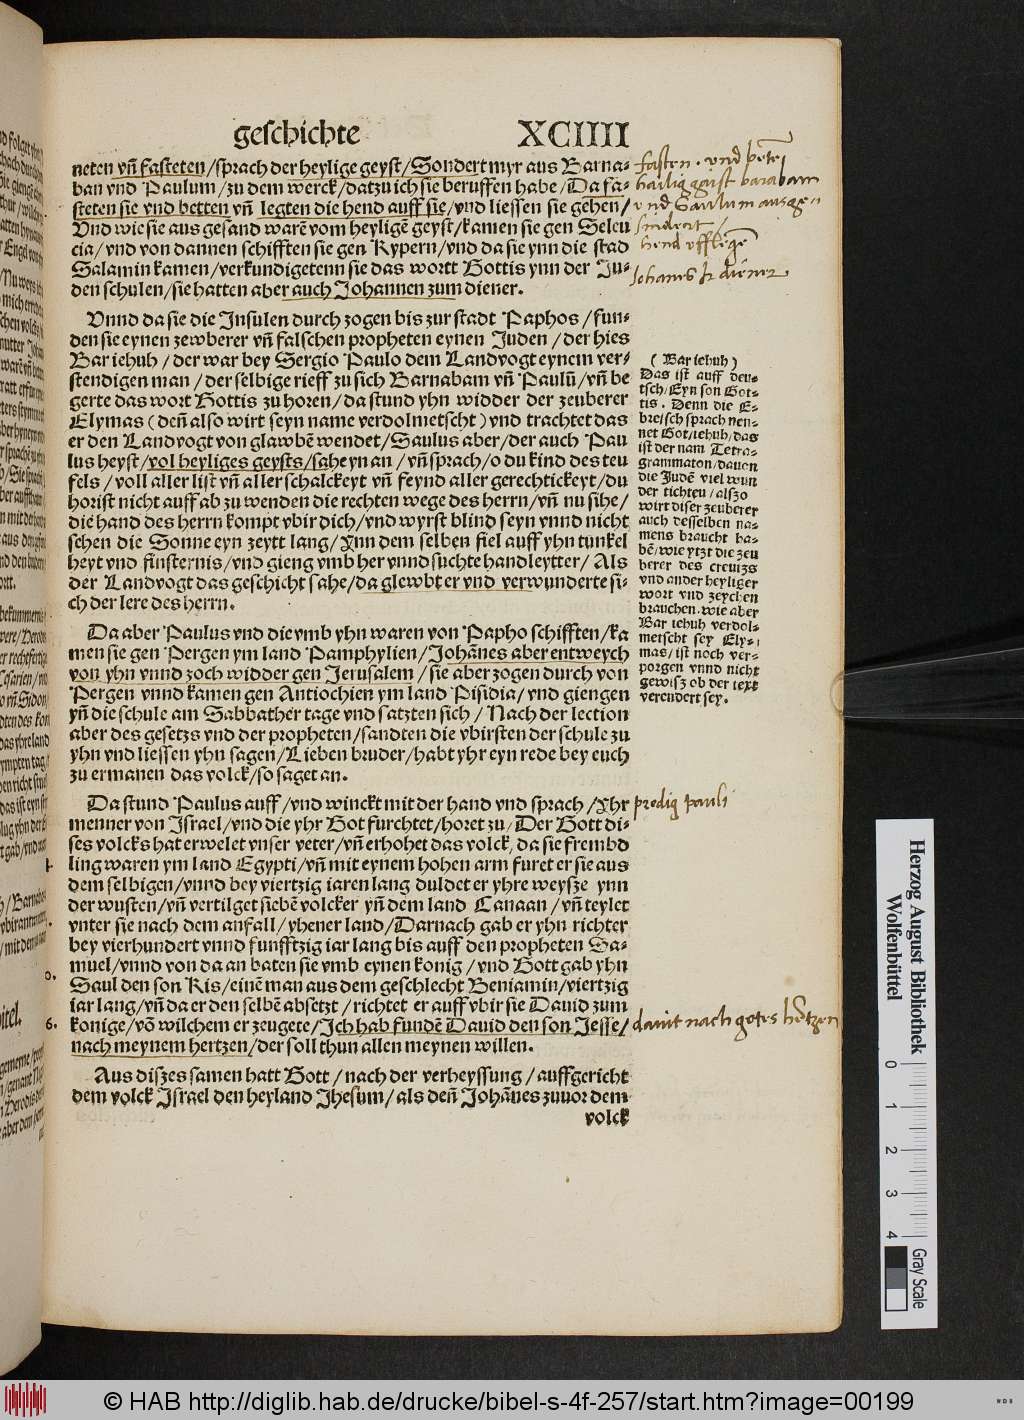 geschichte XCIIII
neten vn̄ fasteten/sprach der heylige geyst/Sondert myr aus Barna-
ban vnd Paulum/zu dem werck/datzu ich sie beruffen habe/Da fa-
steten sie vnd betten vn̄ legten die hend auff sie/vnd liessen sie gehen/
Vnd wie sie aus gesand warē vom heyligē geyst/kamen sie gen Seleu
cia/vnd von dannen schifften sie gen Kypern/vnd da sie ynn die stad
Salamin kamen/verkundigetenn sie das wortt Gottis ynn der Ju-
den schulen/sie hatten aber auch Johannen zum diener.
Vnnd da sie die Insulen durch zogen bis zur stadt Paphos/fun-
den sie eynen zewberer vn̄ falschen propheten eynen Juden/der hies
Bar iehuh/der war bey Sergio Paulo dem Landvogt eynem ver-
stendigen man/der selbige rieff zu sich Barnabam vn̄ Paulū/vn̄ be
gerte das wort Gottis zu horen/da stund yhn widder der zeuberer
Elymas (den̄ also wirt seyn name verdolmetscht) vnd trachtet das
er den Landvogt von glawbē wendet/Saulus aber/der auch Pau
lus heyst/vol heyliges geysts/sahe yn an/vn̄ sprach/o du kind des teu
fels/voll aller list vn̄ aller schalckeyt vn̄ feynd aller gerechtickeyt/du
horist nicht auff ab zu wenden die rechten wege des herrn/vn̄ nu sihe/
die hand des herrn kompt vbir dich/vnd wyrst blind seyn vnnd nicht
sehen die Sonne eyn zeytt lang/Ynn dem selben fiel auff yhn tunkel
heyt vnd finsternis/vnd gieng vmb her vnnd suchte handleytter/Als
der Landvogt das geschicht sahe/da glewbt er vnd verwunderte si-
ch der lere des herrn.
Da aber Paulus vnd die vmb yhn waren von Papho schifften/ka
men sie gen Pergen ym land Pamphylien/Johānes aber entweych
von yhn vnnd zoch widder gen Jerusalem/sie aber zogen durch von
Pergen vnnd kamen gen Antiochien ym land Pisidia/vnd giengen
yn̄ die schule am Sabbather tage vnd satzten sich/Nach der lection
aber des gesetzs vnd der propheten/sandten die vbirsten der schule zu
yhn vnd liessen yhn sagen/Lieben bruder/habt yhr eyn rede bey euch
zu ermanen das volck/so saget an.
Da stund Paulus auff/vnd winckt mit der hand vnd sprach/Yhr
menner von Israel/vnd die yhr Got furchtet/horet zu/Der Gott di-
ses volcks hat erwelet vnser veter/vn̄ erhohet das volck, da sie frembd
ling waren ym land Egypti/vn̄ mit eynem hohen arm furet er sie aus
dem selbigen/vnnd bey viertzig iaren lang duldet er yhre weysze ynn
der wusten/vn̄ vertilget siebē volcker yn̄ dem land Canaan/vn̄ teylet
vnter sie nach dem anfall/yhener land/Darnach gab er yhn richter
bey vierhundert vnnd funfftzig iar lang bis auff den propheten Sa-
muel/vnnd von da an baten sie vmb eynen konig/vnd Gott gab yhn
Saul den son Kis/einē man aus dem geschlecht Beniamin/viertzig
iar lang/vn̄ da er den selbē absetzt/richtet er auff vbir sie Dauid zum
konige/vō wilchem er zeugete/Ich hab fundē Dauid den son Jesse/
nach meynem hertzen/der soll thun allen meynen willen.
Aus diszes samen hatt Gott/nach der verheyssung/auffgericht
dem volck Israel den heyland Jhesum/als den̄ Johānes zuuor dem
volck
fasten. vnd
hailig gaist barabam
vnd Saulum
hend
Johanes diener
(Bar iehuh)
Das ist auff deu-
tsch/Eyn son Got-
tis. Denn die E-
breisch sprach nen-
net Got/iehuh/das
ist der nam Tetra-
grammaton/dauon
die Judē viel wun
der tichten/alszo
wirt diser zeuberer
auch desselben na-
mens braucht ha-
bē/wie ytzt die zeu
berer des creuizs
vnd ander heyliger
wort vnd zeychen
brauchen. wie aber
Bar iehuh verdol-
metscht sey Ely-
mas/ist noch ver-
porgen vnnd nicht
gewisz ob der text
verendert sey.
predig pauli
dauit nach gotes hertzen
Herzog August Bibliothek
Wolfenbüttel
0 1 2 3 4
Gray Scale
© HAB http://diglib.hab.de/drucke/bibel-s-4f-257/start.htm?image=00199